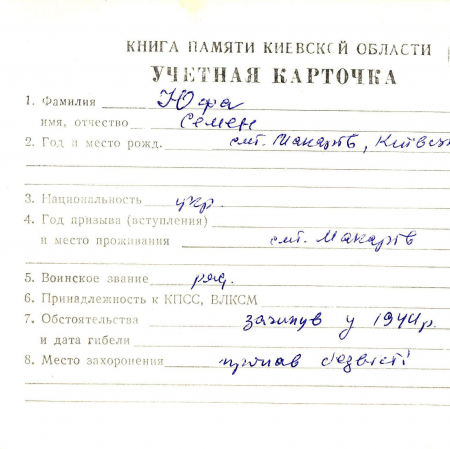 КНИГА ПАМЯТИ КИЕВСКОЙ ОБЛАСТИ
УЧЕТНАЯ КАРТОЧКА
1. Фамилия Юфа
имя, отчество Семен
2. Год и место рожд. смт. Макарів, Київськ
3. Национальность укр.
4. Год призыва (вступления)
и место проживания смт. Макарів
5. Воинское звание ряд.
6. Принадлежность к КПСС, ВЛКСМ
7. Обстоятельства загинув у 1944р.
и дата гибели
8. Место захоронения пропав безвісті